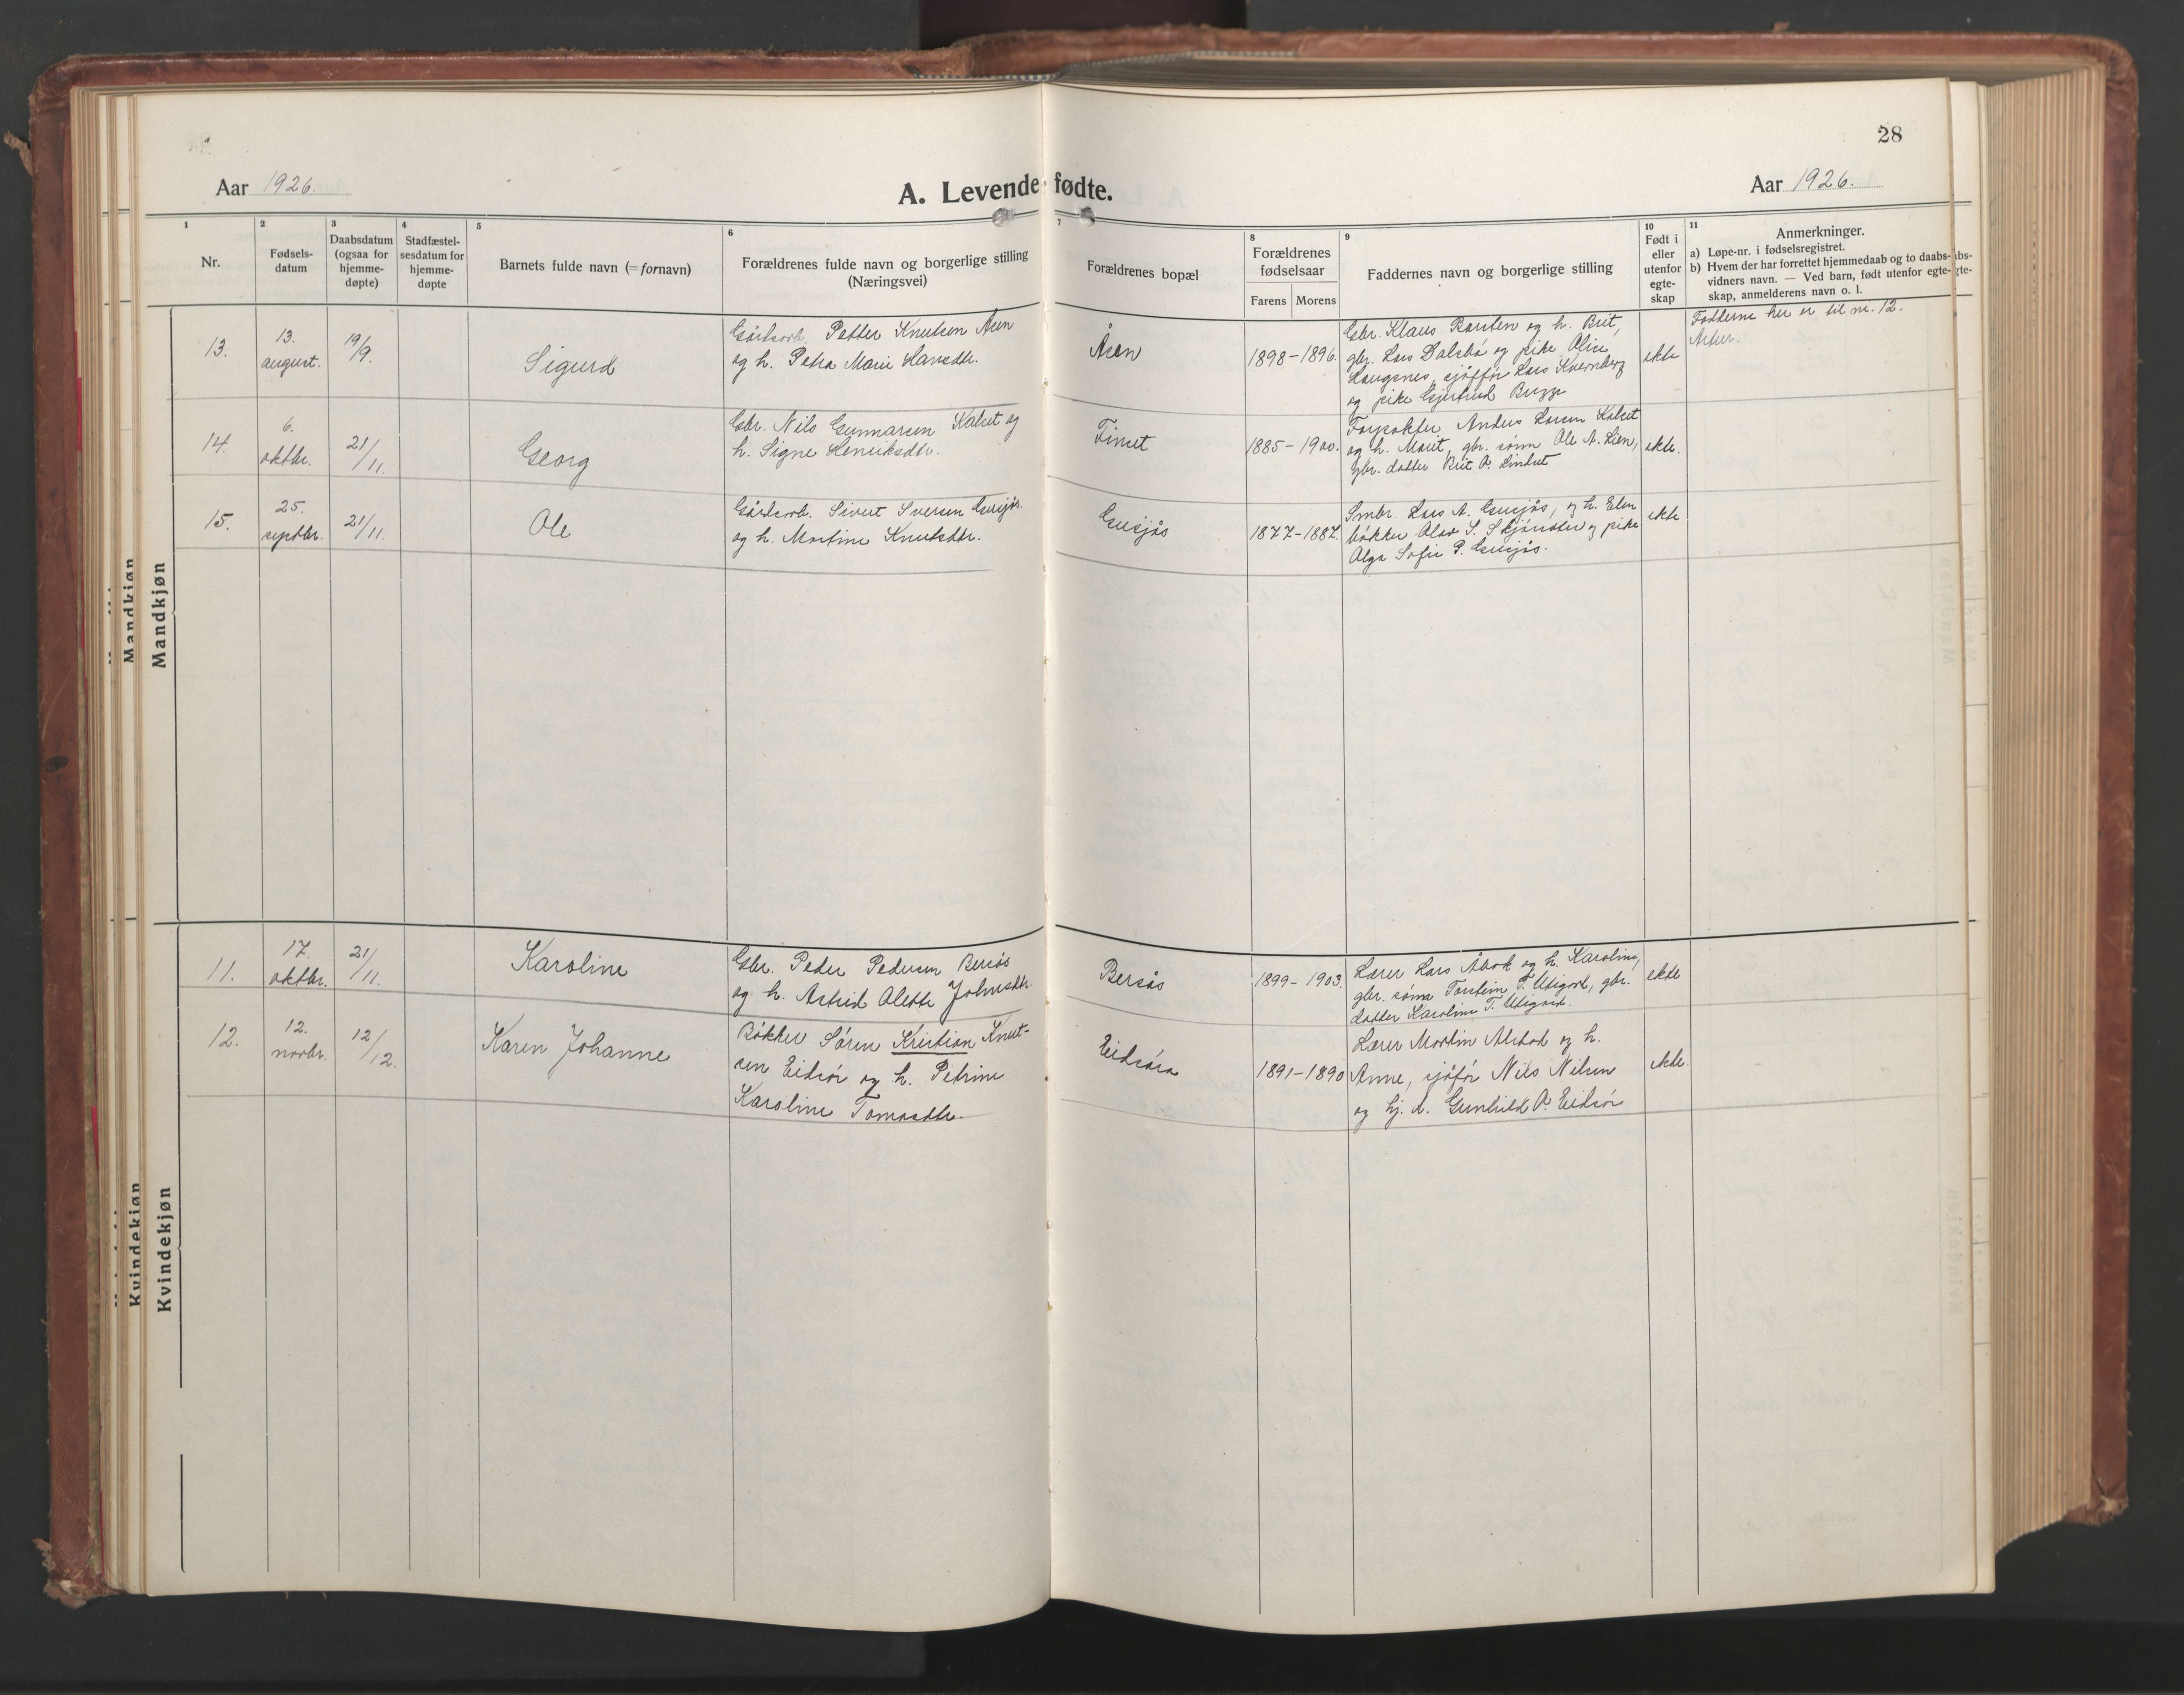 28
Aar 1926.
A. Levende fødte.
Aar 1926.
1
2
3
4
5
6
7
8
9
10
11
Nr.
Fødsels-
datum
Daabsdatum
(ogsaa for
hjemme-
døpte)
Stadfæstel-
sesdatum for
hjemme-
døpte
Barnets fulde navn (= fornavn)
Forældrenes fulde navn og borgerlige stilling
(Næringsvei)
Forældrenes bopæl
Forældrenes
fødselsaar
Farens
Morens
Faddernes navn og borgerlige stilling
Født i
eller
utenfor
egte-
skap
Anmerkninger.
a) Løpe-nr. i fødselsregistret.
b) Hvem der har forrettet hjemmedaab og to daabs-
vidners navn. — Ved barn, født utenfor egte-
skap, anmelderens navn o. l.
Mandkjøn
13.
13.
august.
19/9.
Sigurd
Gårdarb. Petter Knutsen Åsen
og h. Petra Marie Hansdtr.
Åsen
1898-1896.
Gbr. Klaus Barsten og h. Brit,
gbr. Lars Dalsbø og pike Alise
Haugsnes, sjåffør Lars Kvernberg
og pike Gjertrud Bugge
ekte
Fadderne her er til nr. 12.
14.
6.
oktbr.
21/11.
Georg
Gbr. Nils Gunnarsen Kalset og
h. Signe Henriksdtr.
Timset
1885-1900.
Forpakter Anders Larsen Kalset
og h. Marit, gbr. sønn Ole A. Lien,
gbr. datter Brit A. Linset
ekte.
15.
25.
septbr.
21/11.
Ole
Gårdarb. Sivert Iversen Gusjås
og h. Martine Knutsdtr.
Gusjås
1877-1887.
Smbr. Lars A. Gusjås, og h. Elen
bøkker Olav S. Skjørsæter og pike
Alga Sofie P. Gusjås.
ekte
Kvindekjøn
11.
17.
oktbr.
21/11.
Karoline
Gbr. Peder Pedersen Bersås
og h. Astrid Olette Johnsdtr.
Bersås
1899-1903.
Lærer Lars Åbak og h. Karoline,
gbr. sønn Torstein T. Utigard, gbr.
datter Karoline T. Utigard.
ekte
12.
12.
novbr.
12/12.
Karen Johanne
Bøkker Søren Kristian Knut-
sen Eidsør og h. Petrine
Karoline Tomasdtr.
Eidsøra
1891-1890
Lærer Martin Alstad og h.
Anne, sjåfør Nils Nilsen
og hj. d. Gunhild A. Eidsør
ekte.